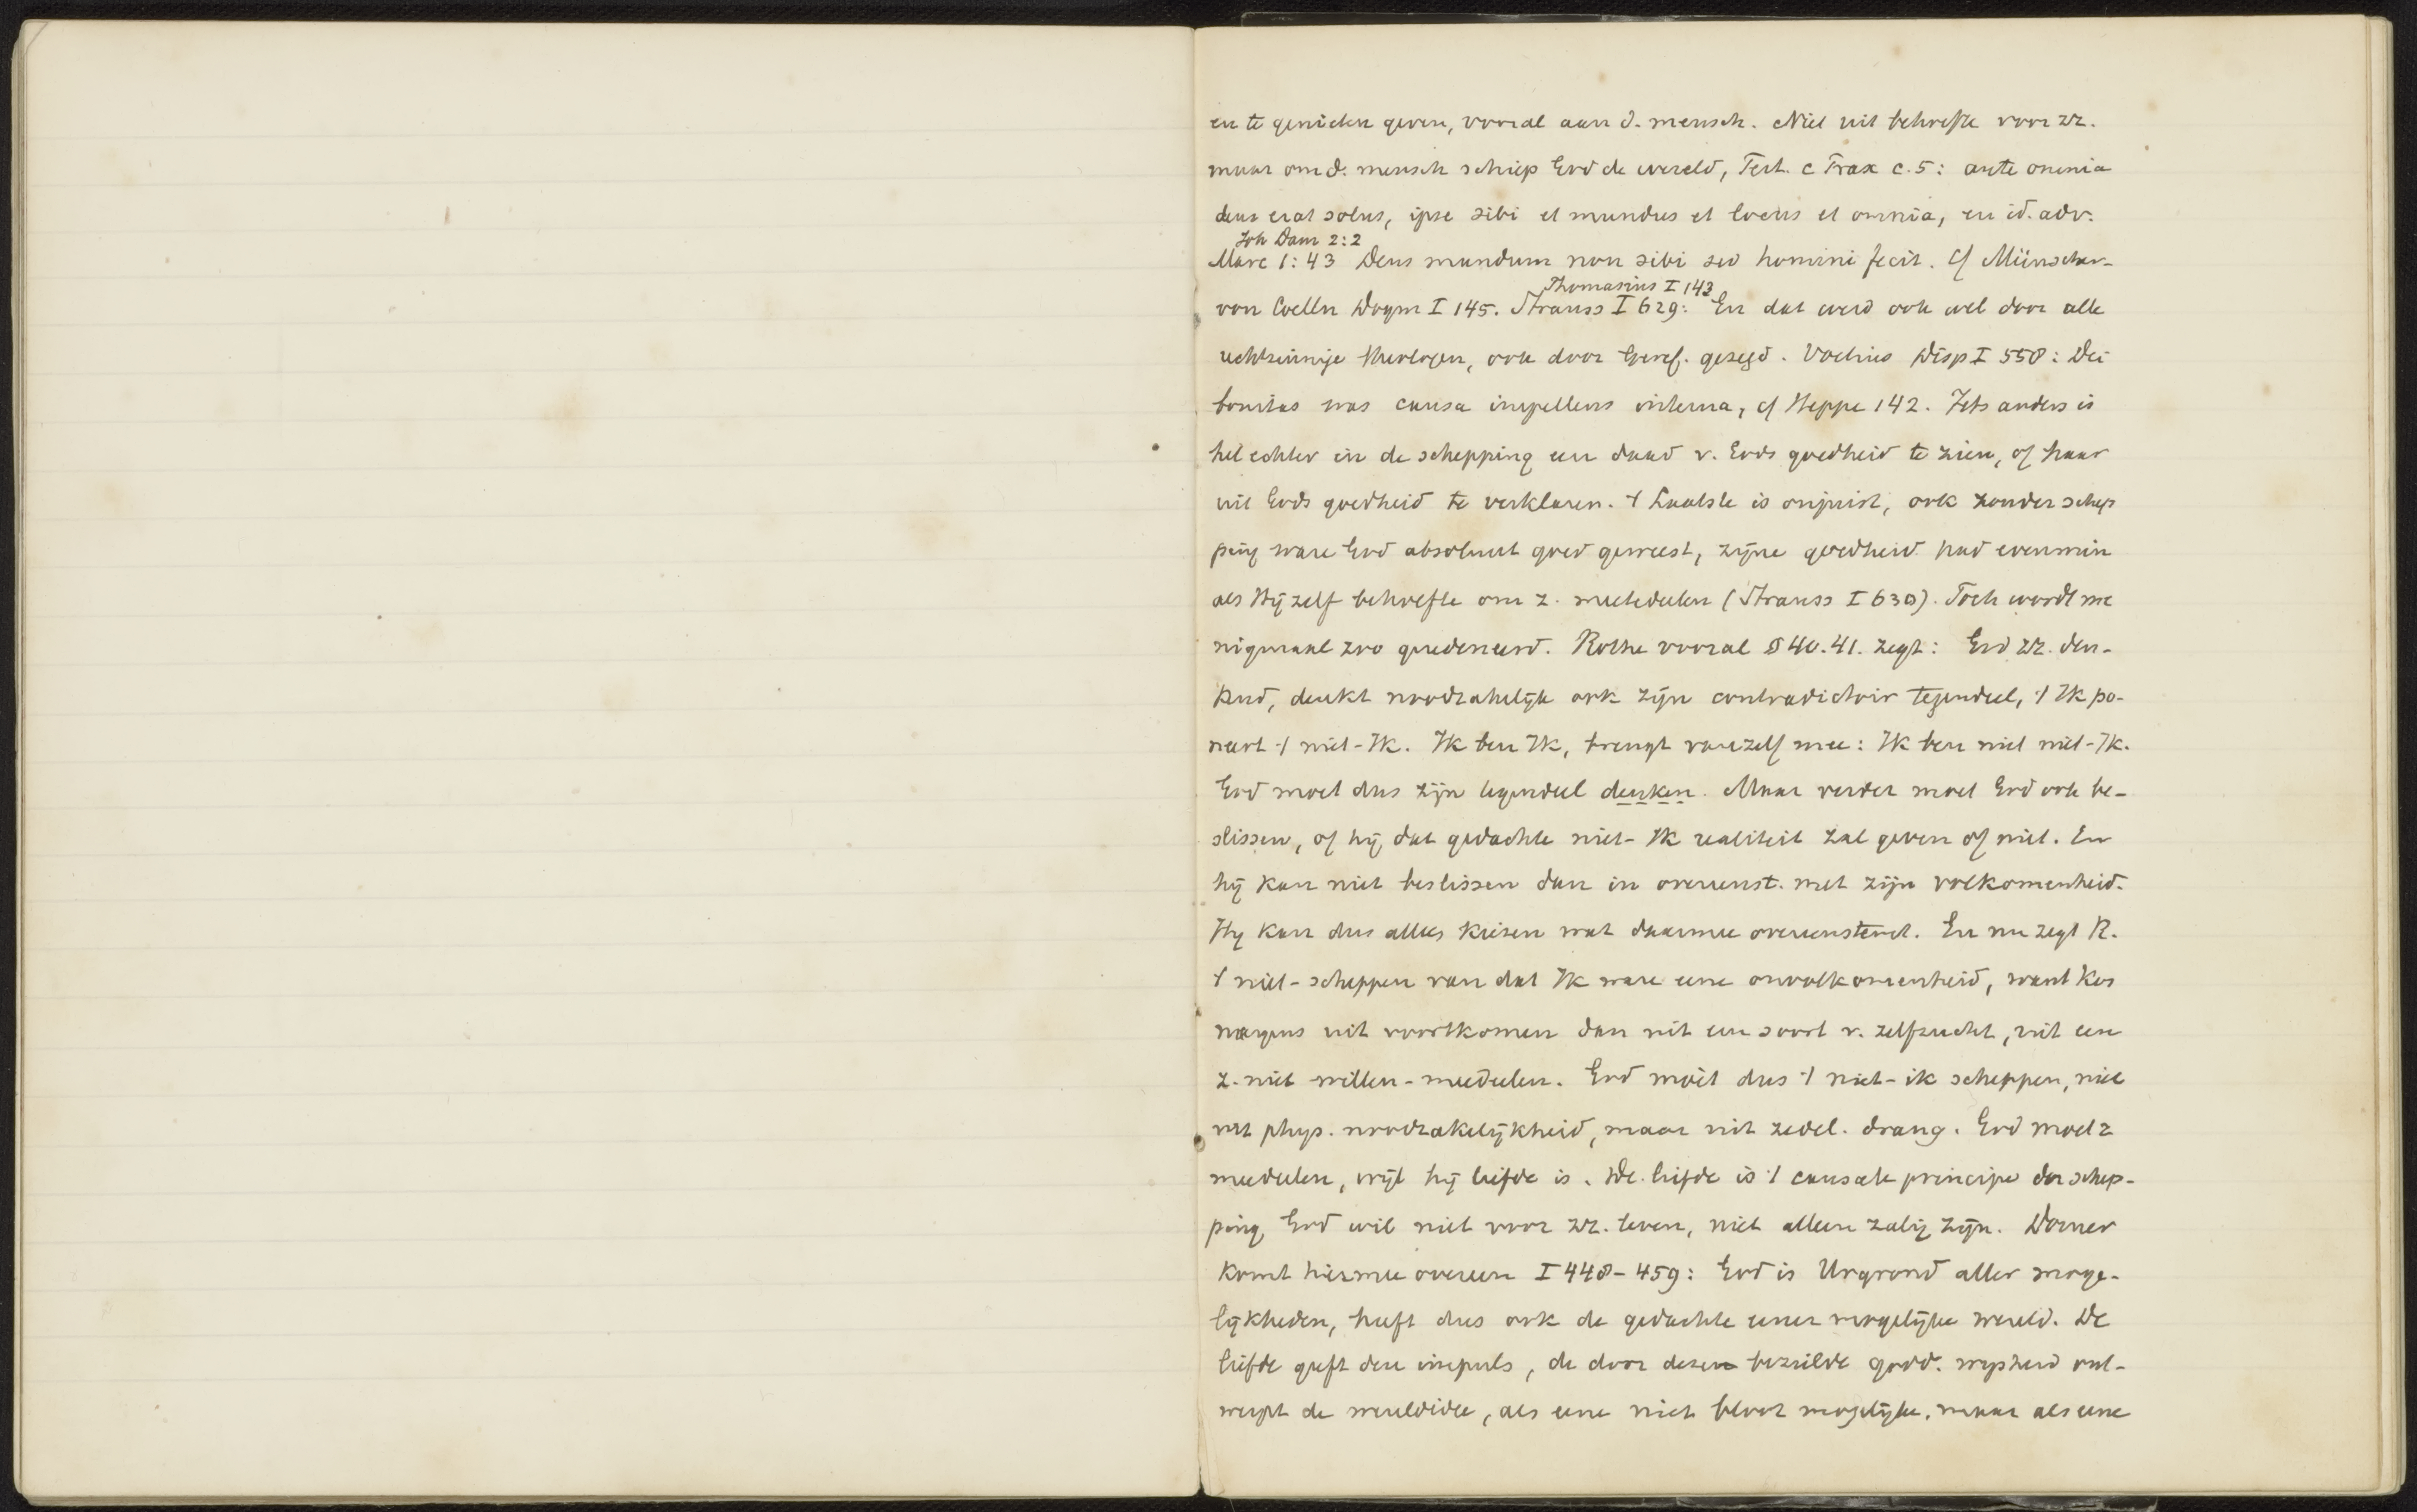 en te genieten geven, vooral aan d. mensch. Niet uit behoefte voor zz.
maar om d. mensch schiep God de wereld, Tert. c Prax c. 5: ante omnia
deus erat solus, ipse sibi et mundus et locus et omnia, en id. adv.
Joh Dam 2:2
Marc 1:43 Deus mundum non sibi sed homini fecit. Cf Münscher-
Thomasius I 143
von Coelln Dogm I 145. Strauss I 629: En dat werd ook wel door alle
rechtzinnige theologen, ook door Geref. gezegd. Voetius Disp I 558: Dei
bonitas was causa impellens interna, cf Heppe 142. Iets anders is
het echter in de schepping een daad v. Gods goedheid te zien, of haar
uit Gods goedheid te verklaren. 't Laatste is onjuist, ook zonder schep
ping ware God absoluut goed geweest, zijne goedheid had evenmin
als Hij zelf behoefte om z. meetedeelen (Strauss I 630). Toch wordt me
nigmaal zoo geredeneerd. Rothe vooral § 40. 41. zegt: God zz. den-
kend, denkt noodzakelijk ook zijn contradictoir tegendeel, 't Ik po-
neert 't niet-Ik. Ik ben Ik, brengt vanzelf mee: Ik ben niet niet-Ik.
God moet dus zijn tegendeel denken. Maar verder moet God ook be-
slissen, of hij dat gedachte niet-Ik realiteit zal geven of niet. En
hij kan niet beslissen dan in overeenst. met zijn volkomenheid.
Hij kan dus alles kiezen wat daarmee overeenstemt. En nu zegt R.
't niet-scheppen van dat Ik ware eene onvolkomenheid, want kon
nergens uit voortkomen dan uit een soort v. zelfzucht, uit een
z. niet willen-meedeelen. God moet dus 't niet-ik scheppen, niet
uit phys. noodzakelijkheid, maar uit zedel. drang. God moet z
meedeelen, wijl hij liefde is. De liefde is 't causale principe der schep-
ping, God wil niet voor zz. leven, niet alleen zalig zijn. Dorner
komt hiermee overeen I 448-459: God is Urgrond aller moge-
lijkheden, heeft dus ook de gedachte eener mogelijke wereld. De
liefde geeft den impuls, de door dezen bezielde godd. wijsheid ont-
werpt de wereldidee, als eene niet bloot mogelijke, maar als eene